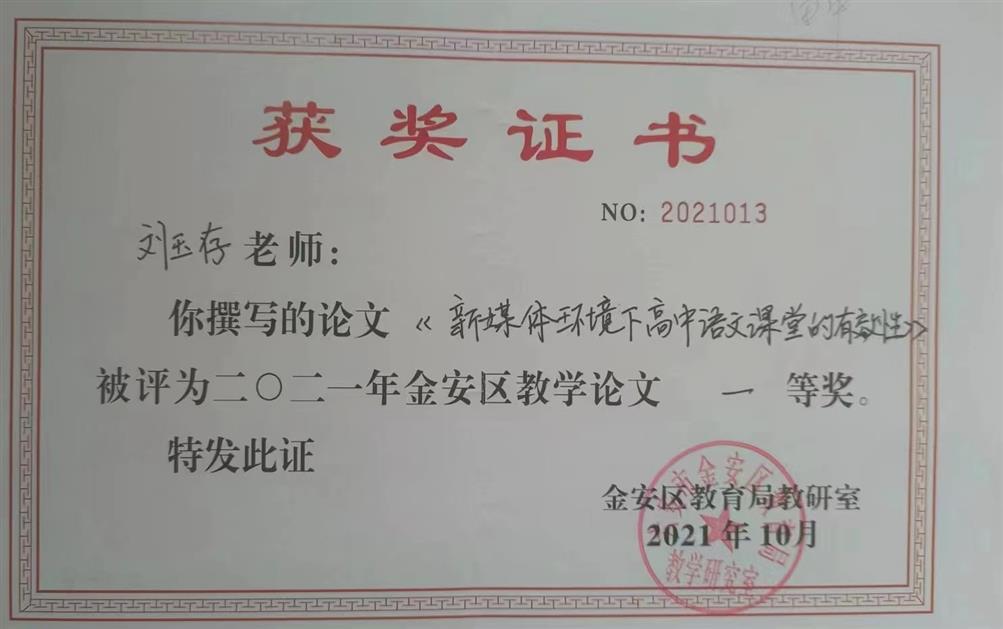 获奖证书
NO: 2021013
刘玉存老师:
你撰写的论文《新媒体环境下高中语文课堂的有效性》
被评为二〇二一年金安区教学论文 一 等奖。
特发此证
金安区教育局教研室
2021年10月
市金安区教育局
教学研究室